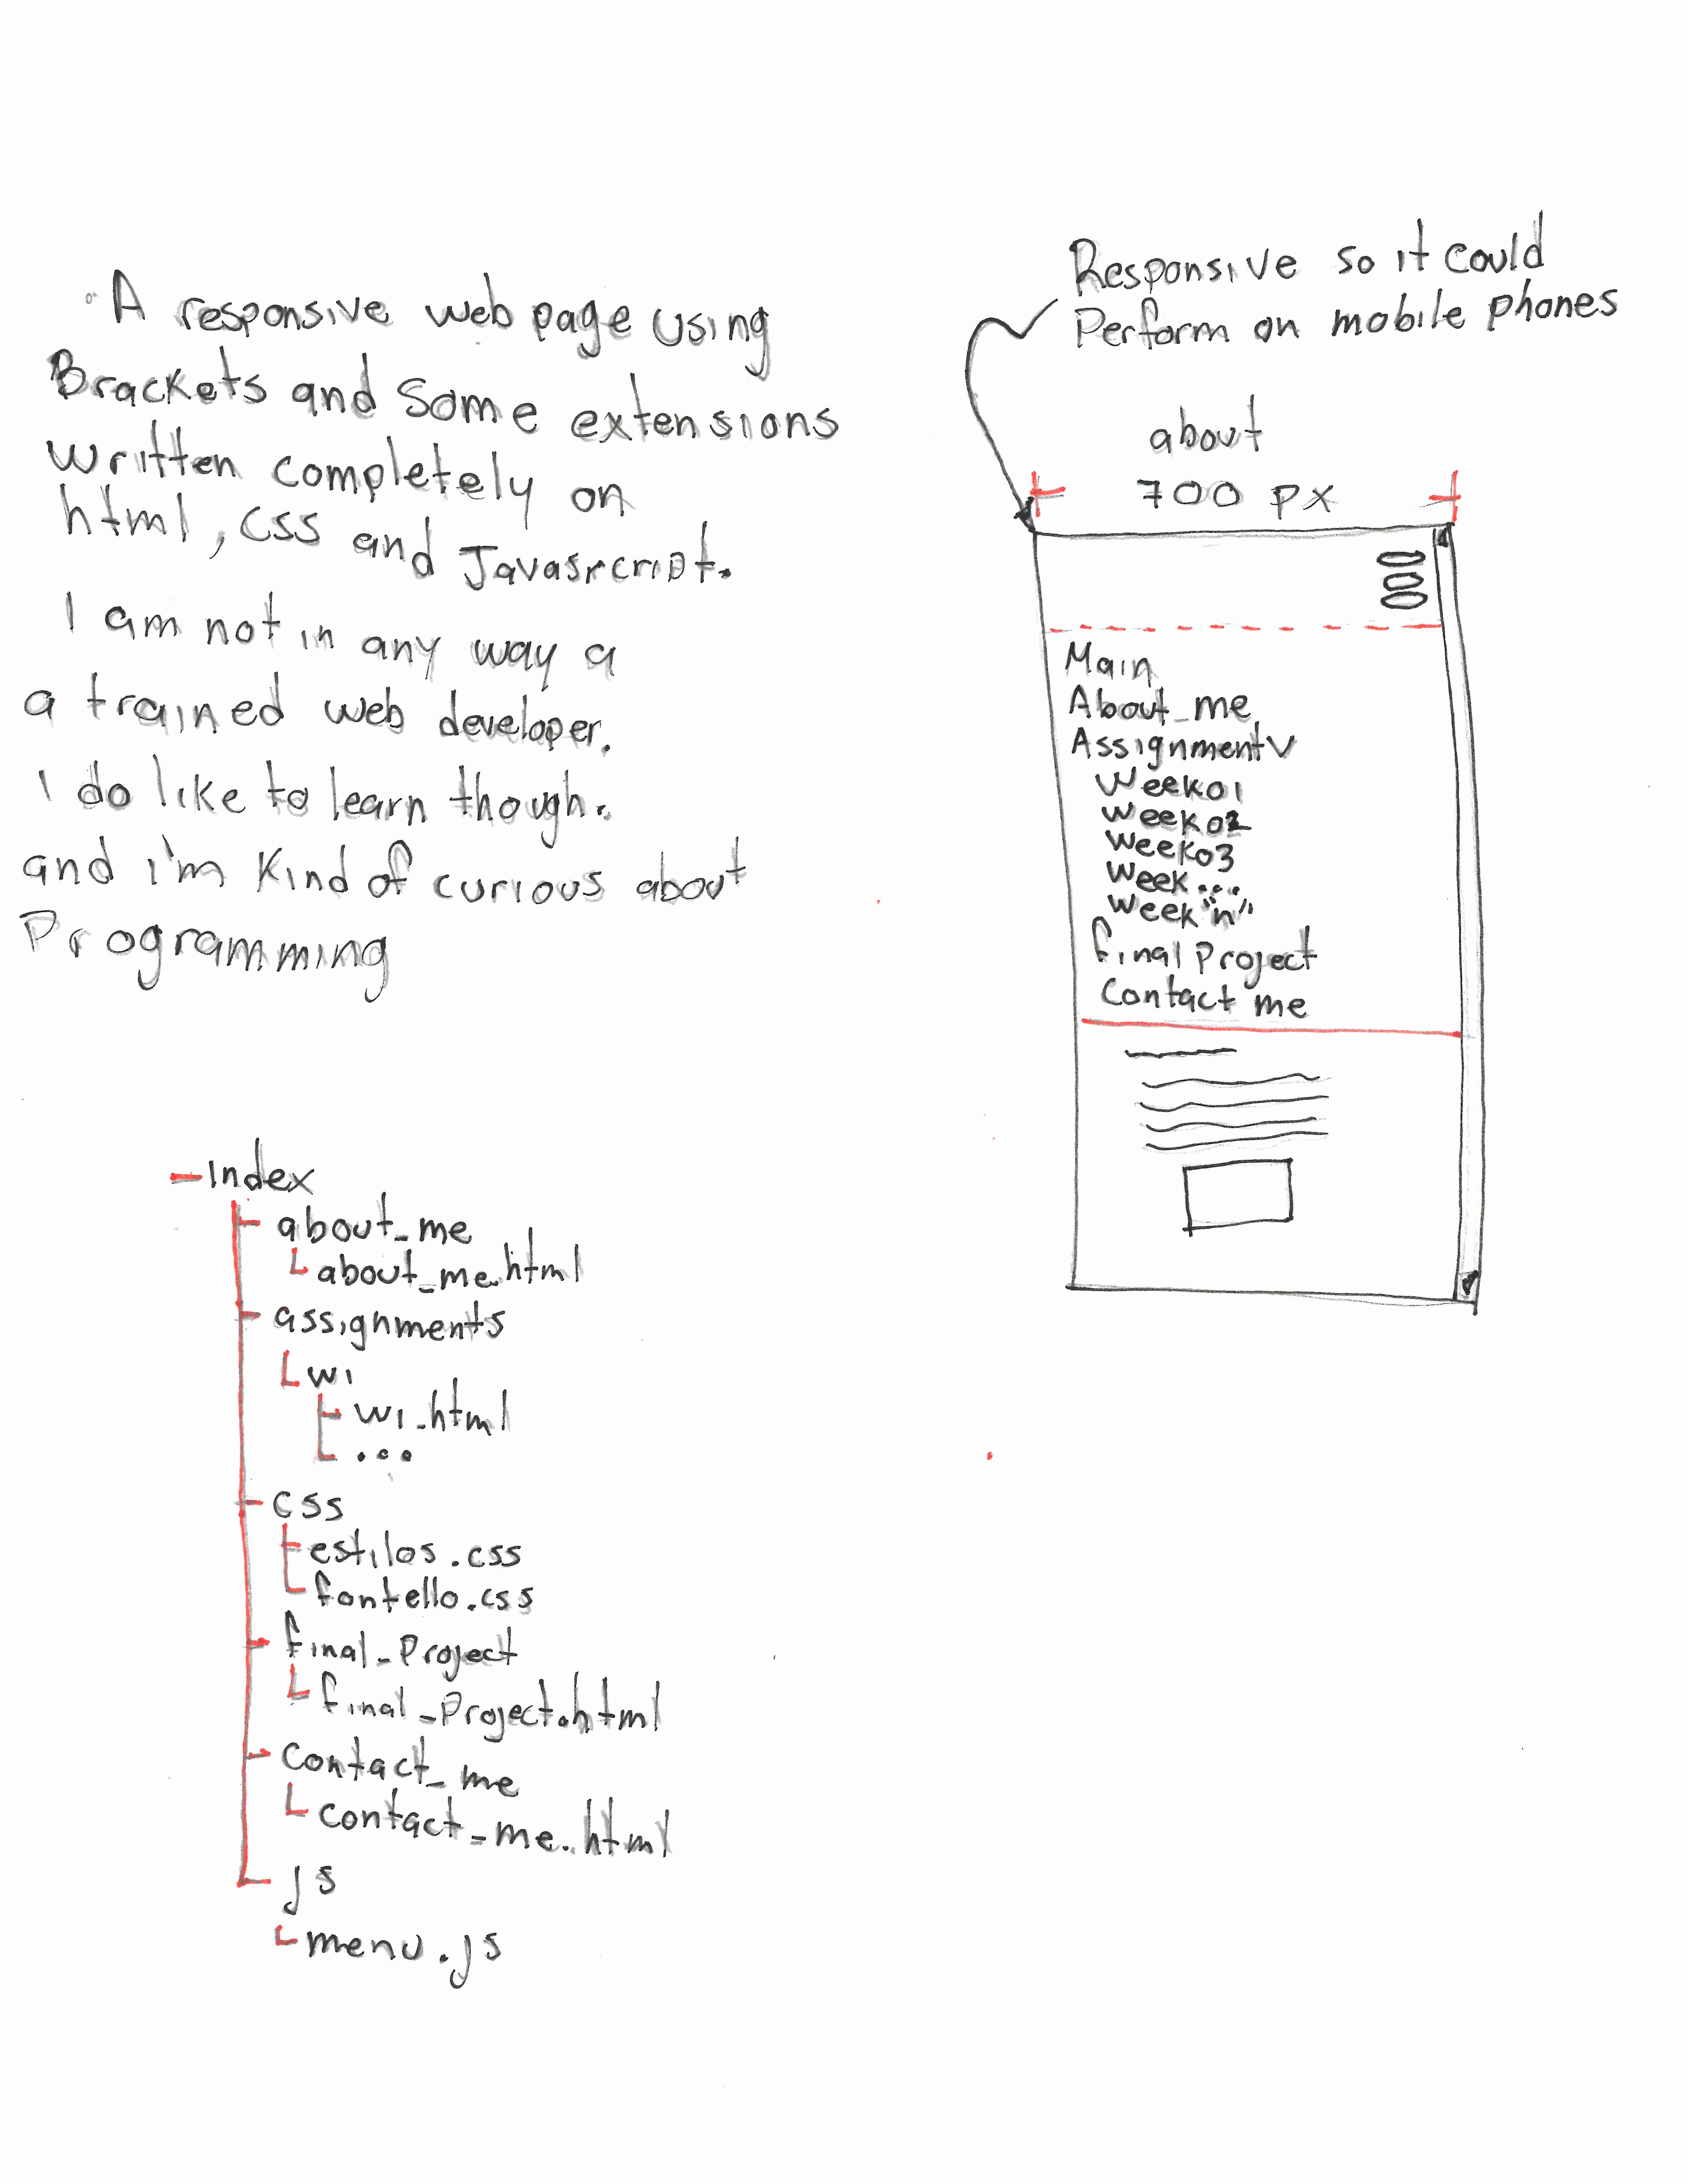 A responsive web page using
Brackets and some extensions
written completely on
html, css and Javasrcript.
I am not in any way a
a trained web developer.
I do like to learn though.
and i'm kind of curious about
Programming
Responsive so it could
Perform on mobile phones
about
700 px
Main
About_me
Assignment v
Week01
Week02
Week03
Week...
Week "n"
final Project
Contact me
index
about_me
about_me.html
assignments
w1
w1.html
...
css
estilos.css
fontello.css
final_Project
final_Project.html
contact_me
contact_me.html
js
menu.js